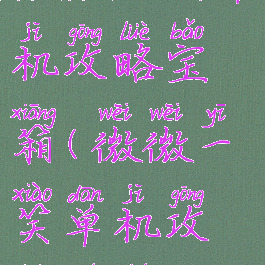 jī gōng lüè bǎo
机攻略宝
xiāng wēi wēi yī
箱(微微一
xiào dān jī gōng
笑单机攻